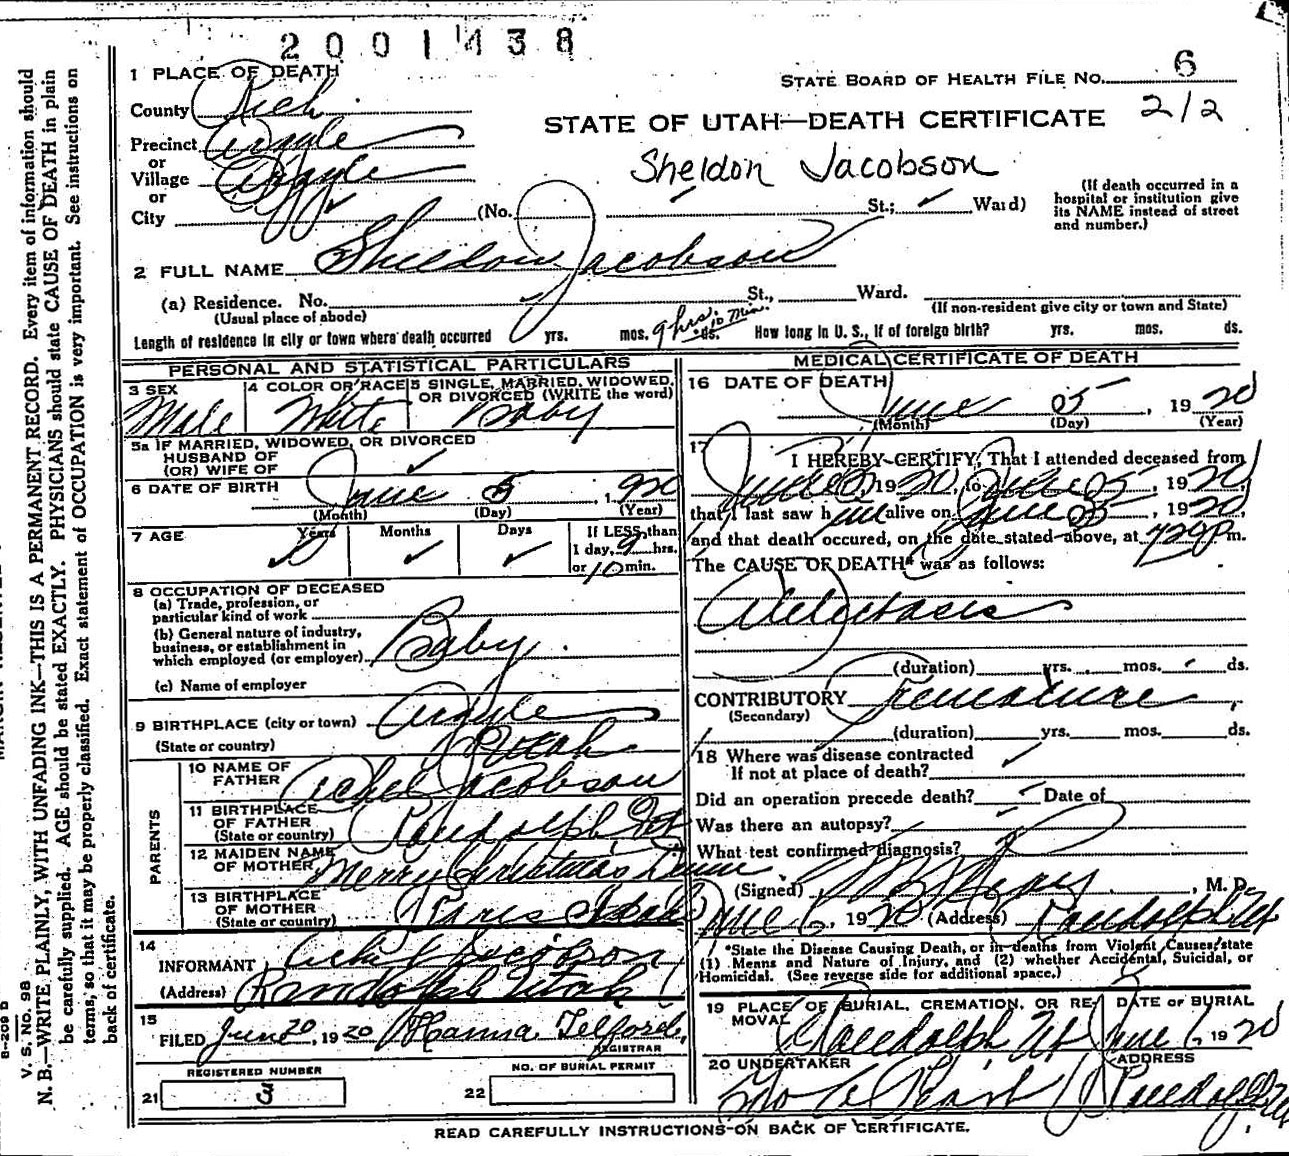 2001438
1 PLACE OF DEATH
STATE BOARD OF HEALTH FILE NO. 6
County Rich
STATE OF UTAH—DEATH CERTIFICATE 212
Precinct Argyle
or
Village Argyle
or
City
Sheldon Jacobson
(No. St.; Ward)
(If death occurred in a
hospital or institution give
its NAME instead of street
and number.)
2 FULL NAME Sheldon Jacobson
(a) Residence. No. St., Ward.
(Usual place of abode)
(If non-resident give city or town and State)
Length of residence in city or town where death occurred yrs. mos. 9 hrs. 10 Min. ds. How long in U. S., if of foreign birth? yrs. mos. ds.
PERSONAL AND STATISTICAL PARTICULARS
3 SEX
Male
4 COLOR OR RACE
White
5 SINGLE, MARRIED, WIDOWED,
OR DIVORCED (WRITE the word)
Baby
5a IF MARRIED, WIDOWED, OR DIVORCED
HUSBAND OF
(OR) WIFE OF
6 DATE OF BIRTH June 5, 1920
(Month) (Day) (Year)
7 AGE Years Months Days If LESS than
1 day, 9 hrs.
or 10 min.
8 OCCUPATION OF DECEASED
(a) Trade, profession, or
particular kind of work
(b) General nature of industry,
business, or establishment in
which employed (or employer) Baby
(c) Name of employer
9 BIRTHPLACE (city or town) Argyle
(State or country) Utah
PARENTS
10 NAME OF
FATHER Jacobson
11 BIRTHPLACE
OF FATHER
(State or country) Randolph, Ut
12 MAIDEN NAME
OF MOTHER Merry Christmas
13 BIRTHPLACE
OF MOTHER
(State or country) Paris Idaho
14
INFORMANT Jacobson
(Address) Randolph Utah
15
FILED June 20, 1920 Hanna Telford
REGISTRAR
REGISTERED NUMBER
21 3
NO. OF BURIAL PERMIT
22
MEDICAL CERTIFICATE OF DEATH
16 DATE OF DEATH
June 5, 1920
(Month) (Day) (Year)
17
I HEREBY CERTIFY, That I attended deceased from
June 5, 1920, to June 5, 1920,
that I last saw him alive on June 5, 1920,
and that death occured, on the date stated above, at 720 P m.
The CAUSE OF DEATH* was as follows:
Atelectasis
(duration) yrs. mos. ds.
CONTRIBUTORY Premature
(Secondary)
(duration) yrs. mos. ds.
18 Where was disease contracted
If not at place of death?
Did an operation precede death? Date of
Was there an autopsy?
What test confirmed diagnosis?
(Signed) , M. D.
June 6, 1920 (Address) Randolph Ut
*State the Disease Causing Death, or in deaths from Violent Causes, state
(1) Means and Nature of Injury, and (2) whether Accidental, Suicidal, or
Homicidal. (See reverse side for additional space.)
19 PLACE OF BURIAL, CREMATION, OR RE-
MOVAL
Randolph, Ut
DATE OF BURIAL
June 6, 1920
20 UNDERTAKER
ADDRESS
Randolph, Ut
READ CAREFULLY INSTRUCTIONS ON BACK OF CERTIFICATE.
V. S. NO. 98
N. B.—WRITE PLAINLY, WITH UNFADING INK—THIS IS A PERMANENT RECORD. Every item of information should
be carefully supplied. AGE should be stated EXACTLY. PHYSICIANS should state CAUSE OF DEATH in plain
terms, so that it may be properly classified. Exact statement of OCCUPATION is very important. See instructions on
back of certificate.